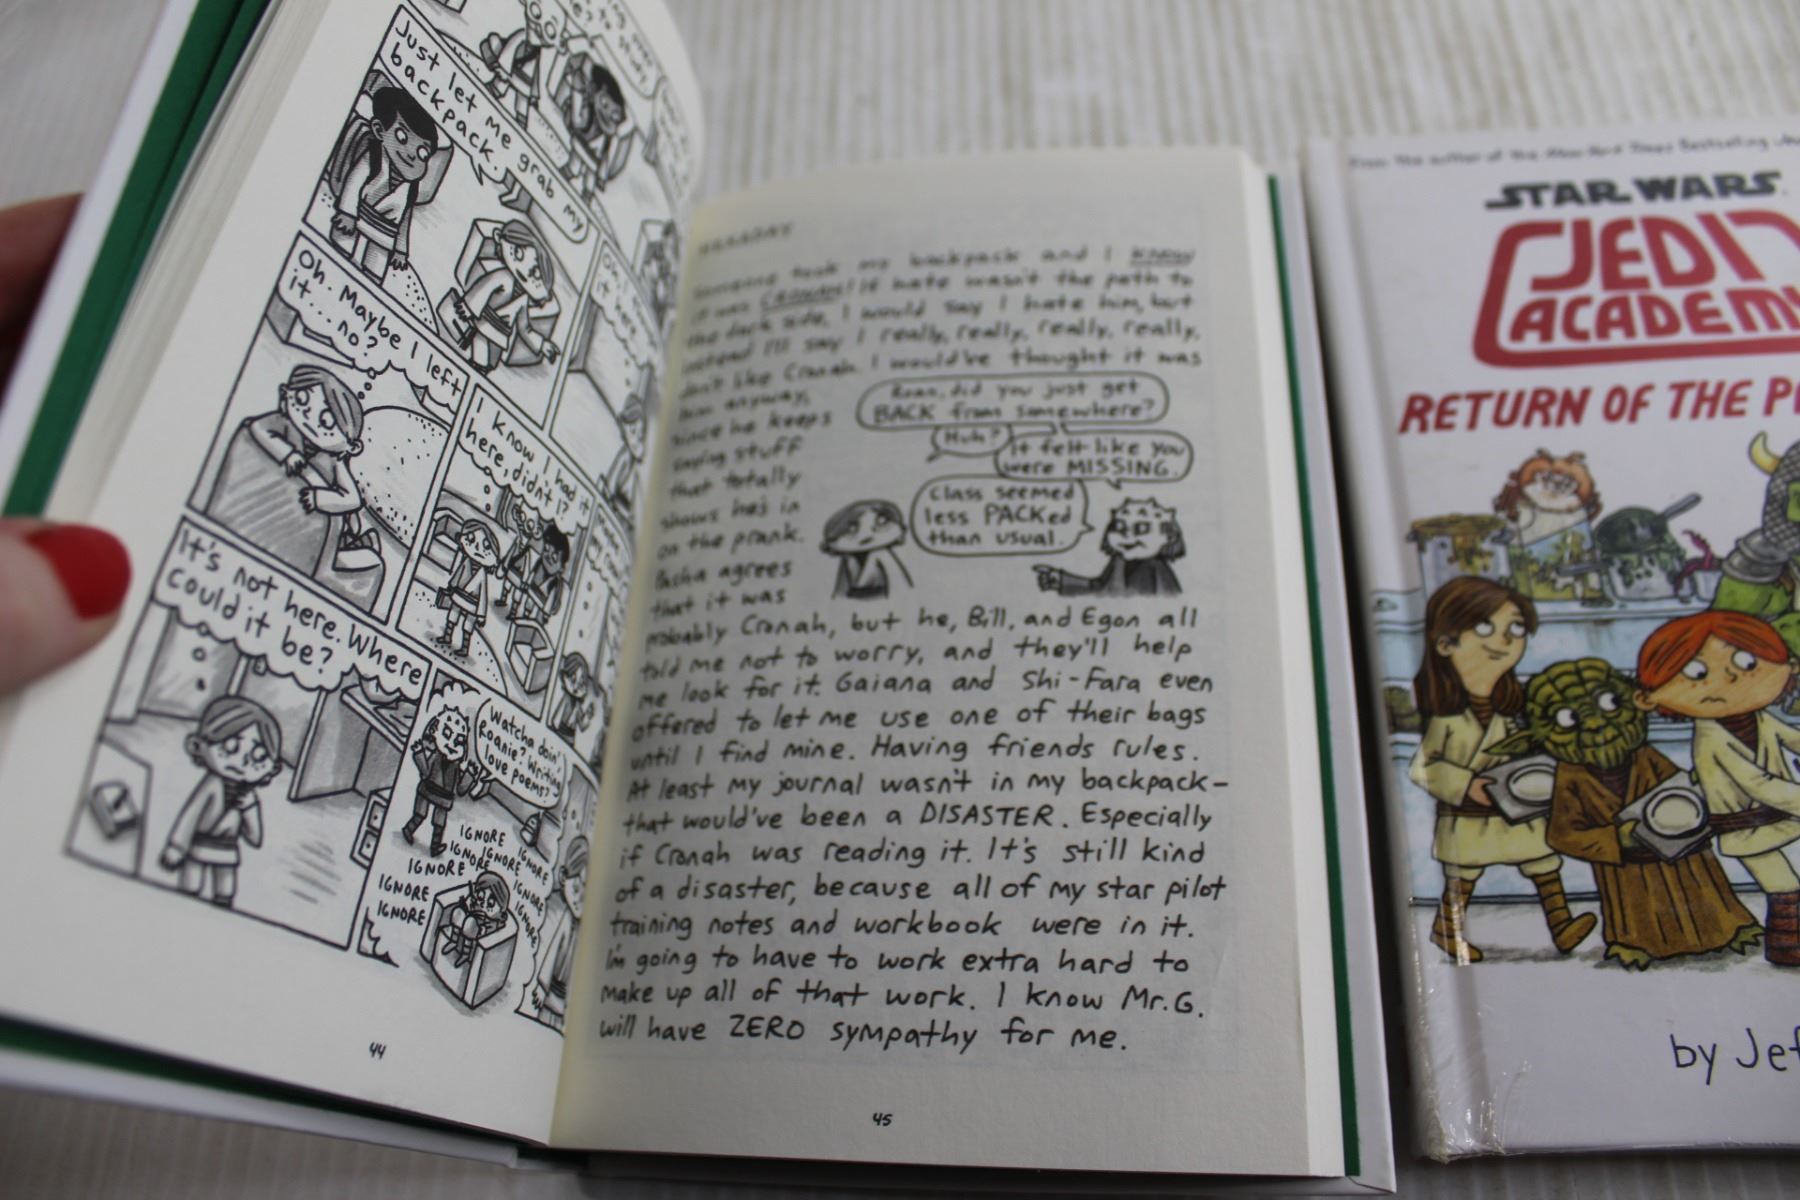 Just let me grab my
backpack.
Oh. Maybe I left
it... no?
I know I had it
here, didn't I?
It's not here. Where
could it be?
Watcha doin'
Roanie? Writing
love poems?
IGNORE IGNORE
IGNORE IGNORE IGNORE
IGNORE IGNORE
IGNORE IGNORE
IGNORE IGNORE
44
Someone took my backpack and I KNOW
it was CRONAH! If hate wasn't the path to
the dark side, I would say I hate him, but
instead I'll say I really, really, really, really,
don't like Cronah. I would've thought it was
him anyway,
since he keeps
saying stuff
that totally
shows he's in
on the prank.
Pasha agrees
that it was
Roan, did you just get
BACK from somewhere?
Huh?
It felt like you
were MISSING.
Class seemed
less PACKed
than usual.
probably Cronah, but he, Bill, and Egon all
told me not to worry, and they'll help
me look for it. Gaiana and Shi-Fara even
offered to let me use one of their bags
until I find mine. Having friends rules.
At least my journal wasn't in my backpack–
that would've been a DISASTER. Especially
if Cronah was reading it. It's still kind
of a disaster, because all of my star pilot
training notes and workbook were in it.
I'm going to have to work extra hard to
make up all of that work. I know Mr. G.
will have ZERO sympathy for me.
45
From the author of the New York Times Bestselling
STAR WARS
JEDI
ACADEMY
RETURN OF THE P
by Jef